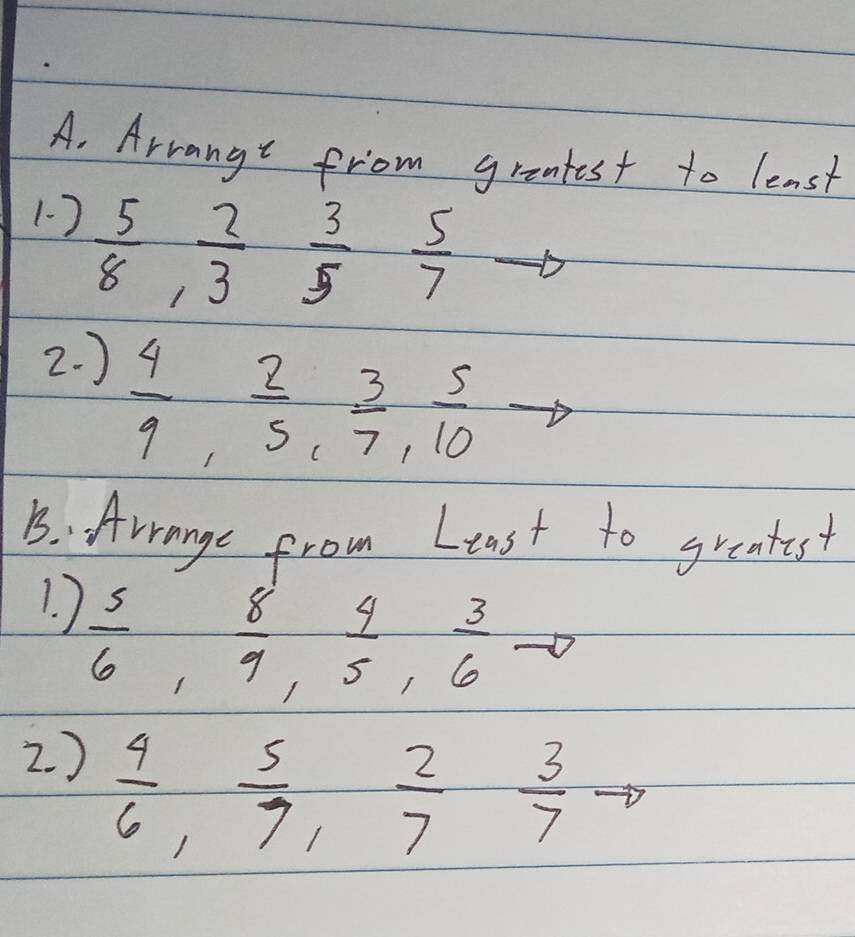 A. Arrange from greatest to least
1.) 5/8, 2/3 3/5 5/7 →
2.) 4/9, 2/5, 3/7, 5/10 →
B. Arrange from Least to greatest
1.) 5/6, 8/9, 4/5, 3/6 →
2.) 4/6, 5/7, 2/7 3/7 →